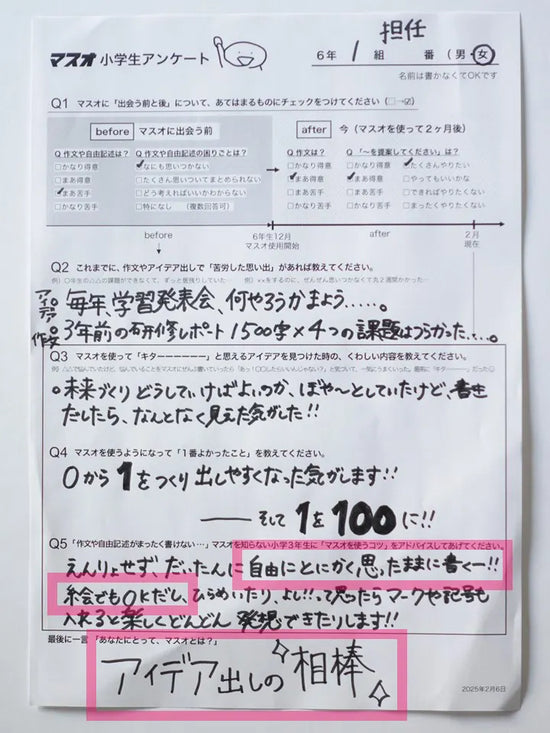 担任
マスオ 小学生アンケート
6年 1 組 番 (男・女)
名前は書かなくてOKです
Q1 マスオに「出会う前と後」について、あてはまるものにチェックをつけてください (□→☑)
before マスオに出会う前
after 今 (マスオを使って2ヶ月後)
Q 作文や自由記述は? Q 作文や自由記述の困りごとは?
□かなり得意 ☑なにも思いつかない
□まあ得意 □たくさん思いついてまとめられない
☑まあ苦手 □どう考えればいいかわからない
□かなり苦手 □特になし (複数回答可)
Q 作文は? Q 「〜を提案してください」は?
□かなり得意 □かなり得意 ☑たくさんやりたい
☑まあ得意 ☑まあ得意 □やってもいいかな
□まあ苦手 □まあ苦手 □できればやりたくない
□かなり苦手 □かなり苦手 □まったくやりたくない
before 6年生12月 after 2月
マスオ使用開始 現在
Q2 これまでに、作文やアイデア出しで「苦労した思い出」があれば教えてください。
アイデア 毎年、学習発表会、何やろうかまよう.....。
作文 3年前の研修レポート 1500字×4つの課題はつらかった....。
Q3 マスオを使って「キターーーーーー」と思えるアイデアを見つけた時の、くわしい内容を教えてください。
。未来づくり どうしていけばよいのか、ぼや〜としていたけど、書き
だしたら、なんとなく見えた気がした!!
Q4 マスオを使うようになって「1番よかったこと」を教えてください。
0から1をつくり出しやすくなった気がします!!
――そして1を100に!!
Q5 「作文や自由記述がまったく書けない…」マスオを知らない小学3年生に「マスオを使うコツ」をアドバイスしてあげてください。
えんりょせず、だいたんに自由にとにかく思ったままに書くー!!
絵でもOKだし、ひらめいたり、よし!!って思ったらマークや記号も
入れると楽しくどんどん発想できたりします!!
最後に一言 「あなたにとって、マスオとは?」
アイデア出しの相棒
2025年2月6日